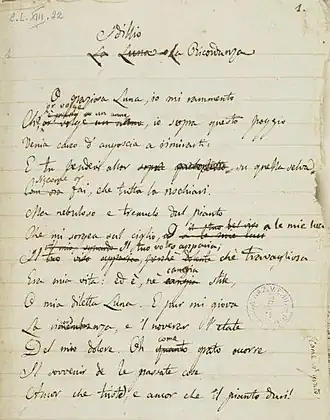 C.L.XIII.22
1.
Idillio
La Luna o La Ricordanza
O graziosa Luna, io mi rammento
or volge un anno
Che, or volge un anno, io sopra questo poggio
Venia carco d'angoscia a rimirarti:
E tu pendevi allor su quella selva
Siccome or
Come ora fai, che tutta la rischiari.
Ma nebuloso e tremulo dal pianto
Che mi sorgea sul ciglio, a le mie luci
Il tuo volto apparia;
Il tuo viso apparia, perchè che travagliosa
cangia
Era mia vita: ed è, nè cangia stile,
O mia diletta Luna. E pur mi giova
La rimembranza, e il noverar l'etate
come
Del mio dolore. Oh quanto grato occorre
Il sovvenir de le passate cose
Ancor che triste, e ancor che il pianto duri!
Come è grato